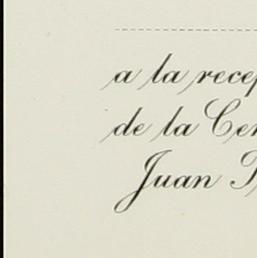 a la recep
de la Cer
Juan